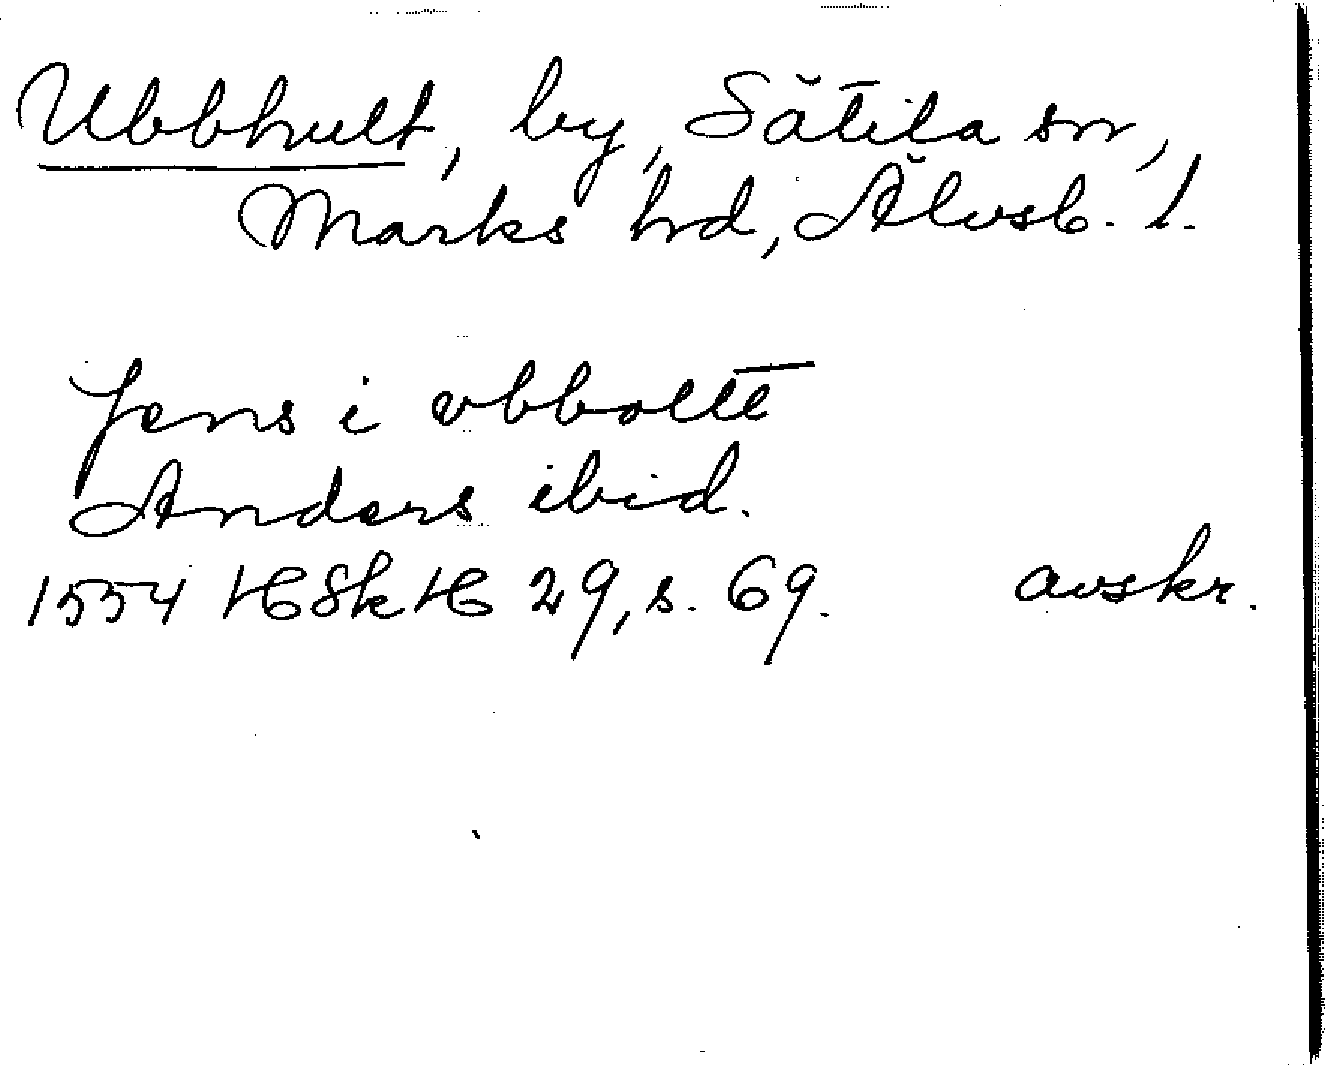 Ubbhult, by, Sätila sn,
Marks hd, Älvsb. l.
Jens i vbboltt
Anders ibid.
1554 HSkH 29, s. 69. avskr.